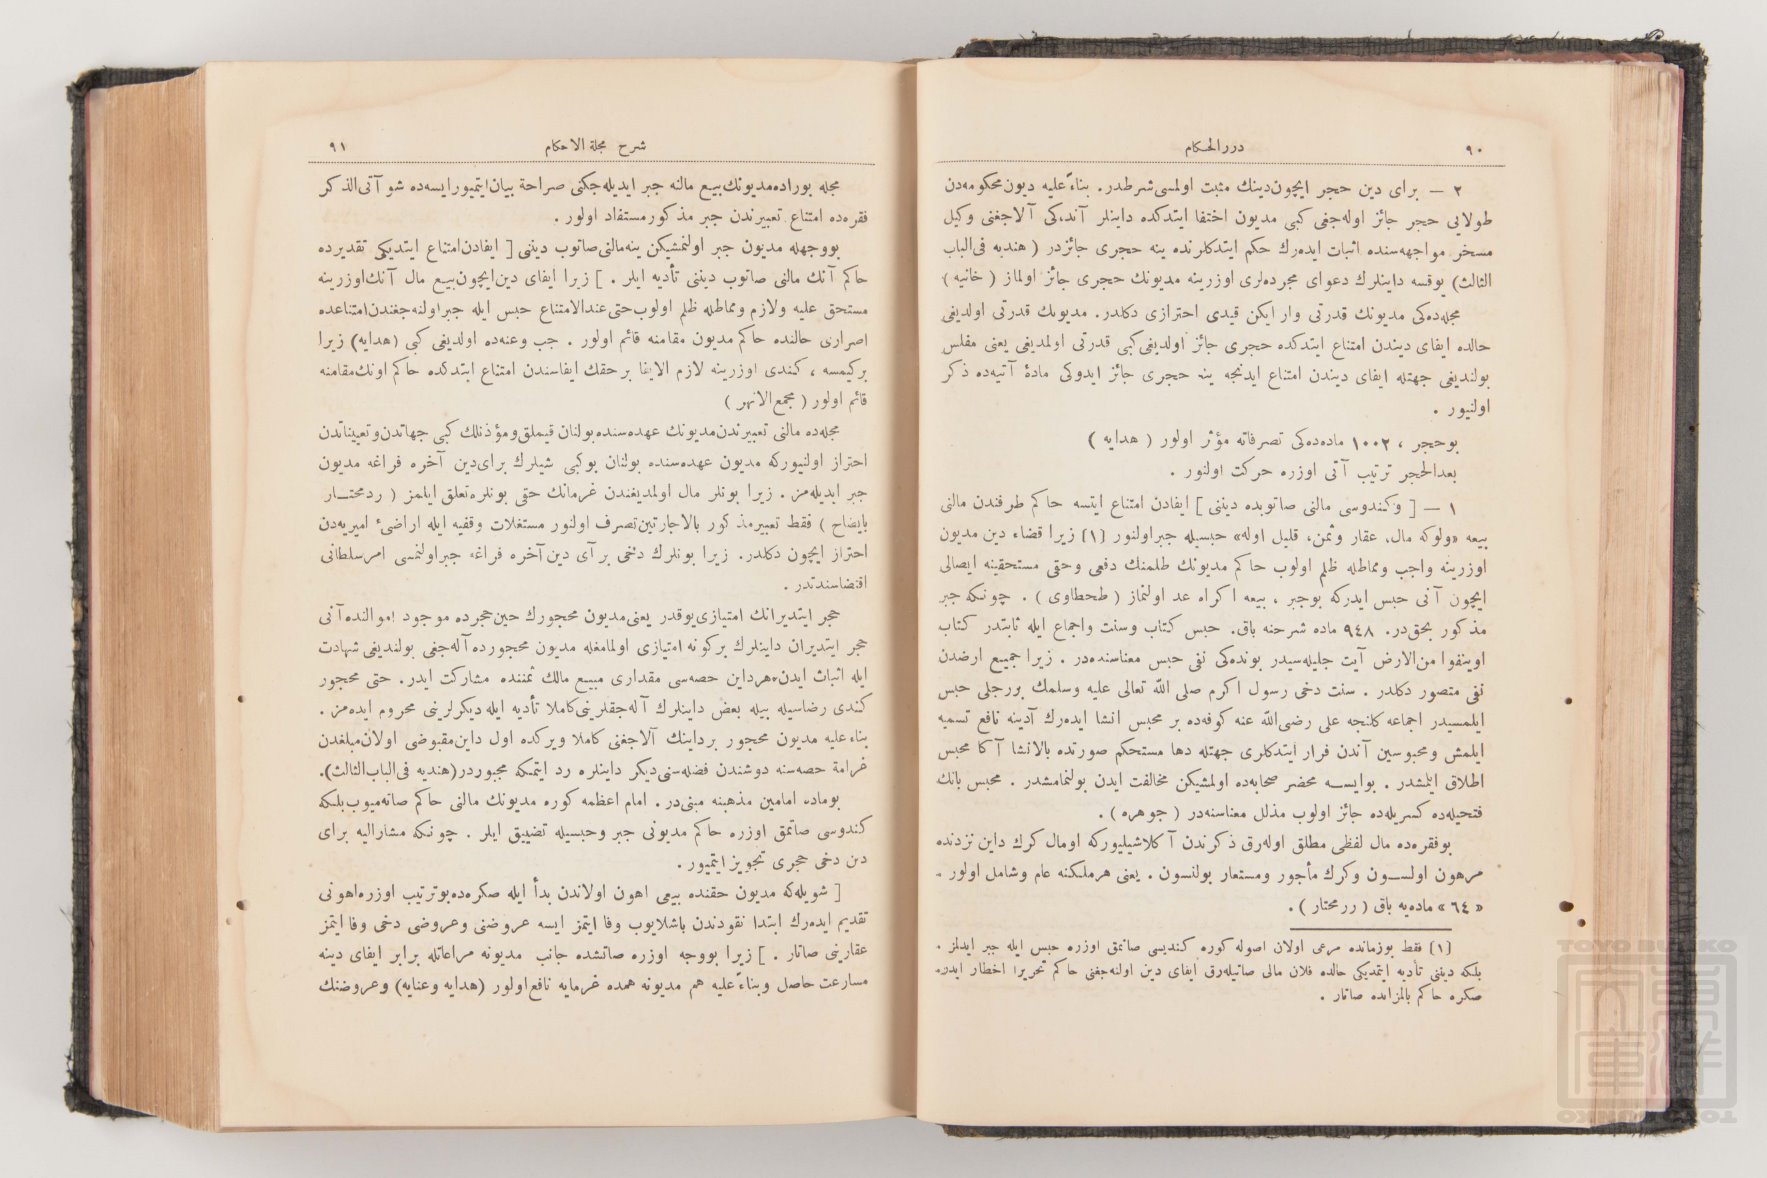 ٩٠
دررالحكام
٢ — برای دین حجر ایچون دینك مثبت اولمسی شرطدر. بناءً علیه دیون محكومه‌دن
طولایی حجر جائز اوله‌جغی كبی مدیون اختفا ایتدكده داینلر آنده‌كی آلاجغنی وكیل
مسخر مواجهه‌سنده اثبات ایده‌رك حكم ایتدكلرنده ینه حجری جائزدر ( هندیه فی الباب
الثالث) یوقسه داینلرك دعوای مجرده‌لری اوزرینه مدیونك حجری جائز اولماز ( خانیه )
مجله‌ده‌كی مدیونك قدرتی وار ایكن قیدی احترازی دكلدر. مدیونك قدرتی اولدیغی
حالده ایفای دیندن امتناع ایتدكده حجری جائز اولدیغی كبی قدرتی اولمدیغی یعنی مفلس
بولندیغی جهتله ایفای دیندن امتناع ایدنجه ینه حجری جائز ایدوكی مادهٔ آتیه‌ده ذكر
اولنیور .
بوحجر ، ١٠٠٢ ماده‌ده‌كی تصرفاته مؤثر اولور ( هدایه )
بعدالحجر ترتیب آتی اوزره حركت اولنور .
١ — [ وكندوسی مالنی صاتوبده دیننی ] ایفادن امتناع ایتسه حاكم طرفندن مالنی
بیعه «ولوكه مال، عقار وثمن، قلیل اوله» حبسیله جبراولنور (١) زیرا قضاء دین مدیون
اوزرینه واجب ومماطله ظلم اولوب حاكم مدیونك ظلمنك دفعی وحقی مستحقینه ایصالی
ایچون آنی حبس ایدركه بوجبر ، بیعه اكراه عد اولنماز ( طحطاوی ) . چونكه جبر
مذكور بحق‌در. ٩٤٨ ماده شرحنه باق. حبس كتاب وسنت واجماع ایله ثابتدر كتاب
اوینفوا من‌الارض آیت جلیله‌سیدر بونده‌كی نفی حبس معناسنده‌در . زیرا جمیع ارضدن
نفی متصور دكلدر . سنت دخی رسول اكرم صلی الله تعالی علیه وسلمك بررجلی حبس
ایلمسیدر اجماعه كلنجه علی رضی‌الله عنه كوفه‌ده بر محبس انشا ایده‌رك آدینه نافع تسمیه
ایلمش ومحبوسین آندن فرار ایتدكلری جهتله دها مستحكم صورتده بالانشا آكا محبس
اطلاق ایلمشدر . بوایسه محضر صحابه‌ده اولمشیكن مخالفت ایدن بولنمامشدر . محبس بانك
فتحیله‌ده كسریله‌ده جائز اولوب مذلل معناسنه‌در ( جوهره ) .
بوفقره‌ده مال لفظی مطلق اوله‌رق ذكرندن آكلاشیلیوركه اومال كرك داین نزدنده
مرهون اولسون وكرك مأجور ومستعار بولنسون . یعنی هرملكنه عام وشامل اولور .
« ٦٤ » ماده‌یه باق ( ررمختار ) .
(١) فقط بوزمانده مرعی اولان اصوله كوره كندیسی صاتمق اوزره حبس ایله جبر ایدلز .
بلكه دیننی تأدیه ایتمدیكی حالده فلان مالی صاتیله‌رق ایفای دین اولنه‌جغنی حاكم تحریرا اخطار ایدر.
صكره حاكم بالمزایده صاتار .
شرح مجلة الاحكام
٩١
مجله بوراده مدیونك بیع مالنه جبر ایدیله‌جكنی صراحة بیان ایتمیور ایسه‌ده شو آتی الذكر
فقره‌ده امتناع تعبیرندن جبر مذكور مستفاد اولور .
بووجهله مدیون جبر اولنمشیكن ینه مالنی صاتوب دیننی [ ایفادن امتناع ایتدیكی تقدیرده
حاكم آنك مالنی صاتوب دیننی تأدیه ایلر . ] زیرا ایفای دین ایچون بیع مال آنك اوزرینه
مستحق علیه ولازم ومماطله ظلم اولوب حتی عندالامتناع حبس ایله جبراولنه‌جغندن امتناعده
اصراری حالنده حاكم مدیون مقامنه قائم اولور . جب وعنه‌ده اولدیغی كبی (هدایه) زیرا
بركیمسه ، كندی اوزرینه لازم الایفا برحقك ایفاسندن امتناع ایتدكده حاكم اونك مقامنه
قائم اولور ( مجمع الانهر )
مجله‌ده مالنی تعبیرندن مدیونك عهده‌سنده بولنان قیملق ومؤذنلك كبی جهاتدن وتعییناتدن
احتراز اولنیوركه مدیون عهده‌سنده بولنان بوكبی شیلرك برای دین آخره فراغه مدیون
جبر ایدیله‌مز . زیرا بونلر مال اولمدیغندن غرمانك حقی بونلره تعلق ایلمز ( ردمختار
بایضاح ) فقط تعبیرمذكور بالاجارتین تصرف اولنور مستغلات وقفیه ایله اراضیء امیریه‌دن
احتراز ایچون دكلدر. زیرا بونلرك دخی برآی دین آخره فراغه جبراولنمسی امرسلطانی
اقتضاسندندر .
حجر ایتدیرانك امتیازی یوقدر یعنی مدیون محجورك حین حجرده موجود اموالنده آنی
حجر ایتدیران داینلرك بركونه امتیازی اولمامغله مدیون محجورده آله‌جغی بولندیغی شهادت
ایله اثبات ایدن هرداین حصه‌سی مقداری مبیع مالك ثمننده مشاركت ایدر. حتی محجور
كندی رضاسیله بیله بعض داینلرك آله‌جقلرینی كاملا تأدیه ایله دیكرلرینی محروم ایده‌مز .
بناء علیه مدیون محجور برداینك آلاجغنی كاملا ویركده اول داین مقبوضی اولان مبلغدن
غرامة حصه‌سنه دوشندن فضله‌سنی دیكر داینلره رد ایتمكه مجبوردر(هندیه فی الباب الثالث).
بوماده امامین مذهبنه مبنی‌در . امام اعظمه كوره مدیونك مالنی حاكم صاته‌میوب بلكه
كندوسی صاتمق اوزره حاكم مدیونی جبر وحبسیله تضییق ایلر . چونكه مشارالیه برای
دین دخی حجری تجویز ایتمیور .
[ شویله‌كه مدیون حقنده بیعی اهون اولاندن بدأ ایله صكره‌ده بوترتیب اوزره اهونی
تقدیم ایده‌رك ابتدا نقودندن باشلایوب وفا ایتمز ایسه عروضنی وعروضی دخی وفا ایتمز
عقارینی صاتار . ] زیرا بووجه اوزره صاتشده جانب مدیونه مراعاتله برابر ایفای دینه
مسارعت حاصل وبناءً علیه هم مدیونه همده غرمایه نافع اولور (هدایه وعنایه) وعروضنك
TOYO BUNKO